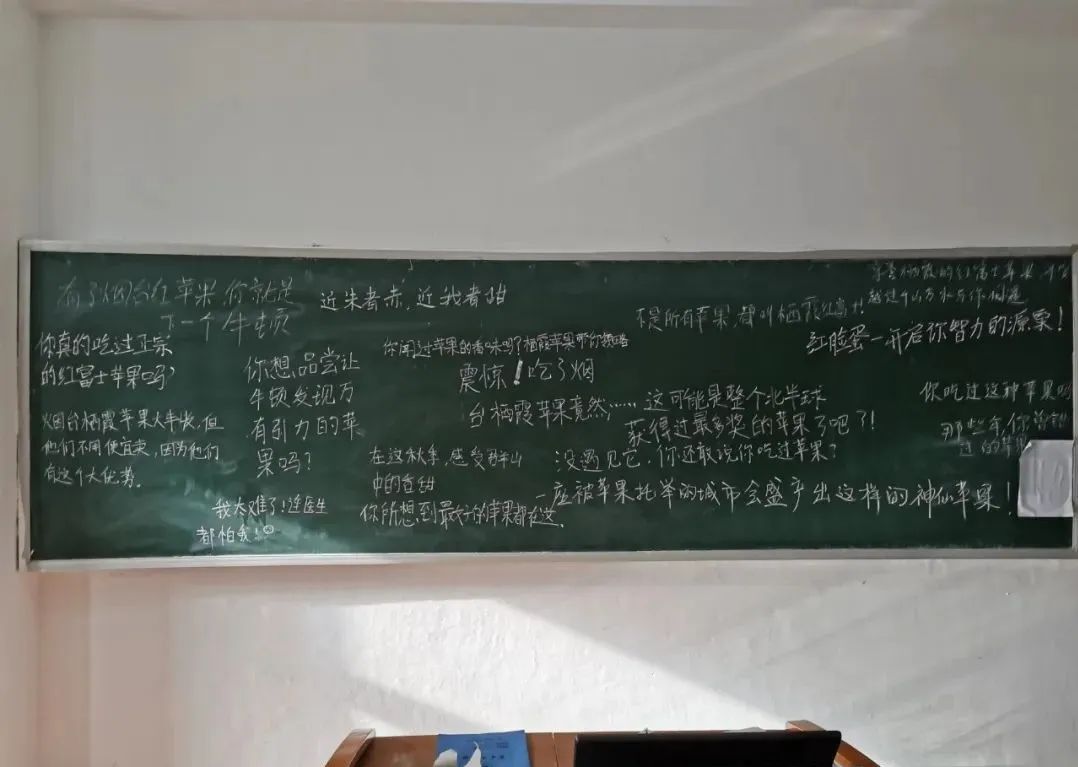 有了烟台红苹果你就是
下一个牛顿
近朱者赤,近我者甜
你真的吃过正宗
的红富士苹果吗?
烟台栖霞苹果大丰收,但
他们不用便宜卖,因为他们
有这个大优势。
你想品尝让
牛顿发现万
有引力的苹
果吗?
我太难了!连医生
都怕我!
你闻过苹果的香味吗?栖霞苹果带你领略
震惊!吃了烟
台栖霞苹果竟然……
在这秋季,感受群山
中的香甜
你所想到最好的苹果都在这。
不是所有苹果,都叫栖霞红富士!
这可能是整个北半球
获得过最多奖的苹果了吧?!
没遇见它,你还敢说你吃过苹果?
一座被苹果托举的城市会盛产出这样的神仙苹果!
栖霞的红富士苹果
越过千山万水与你相遇
红脸蛋一开启你智力的源泉!
你吃过这种苹果吗
那些年,你曾
过的苹果